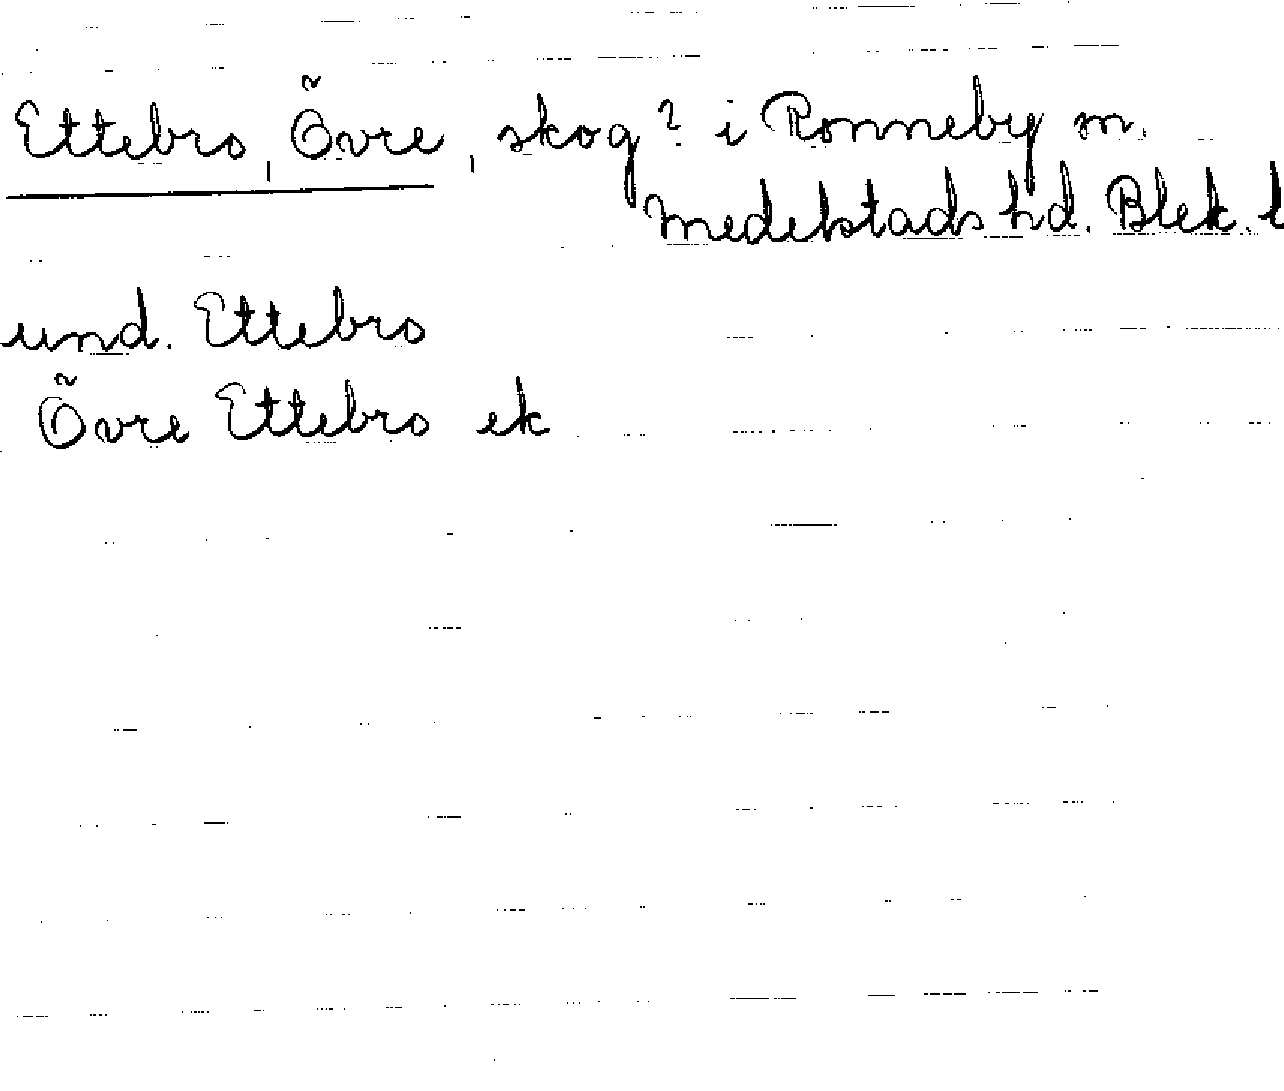 Ettebro, Övre, skog? i Ronneby sn.
Medelstads hd. Blek. l
und. Ettebro
Övre Ettebro ek